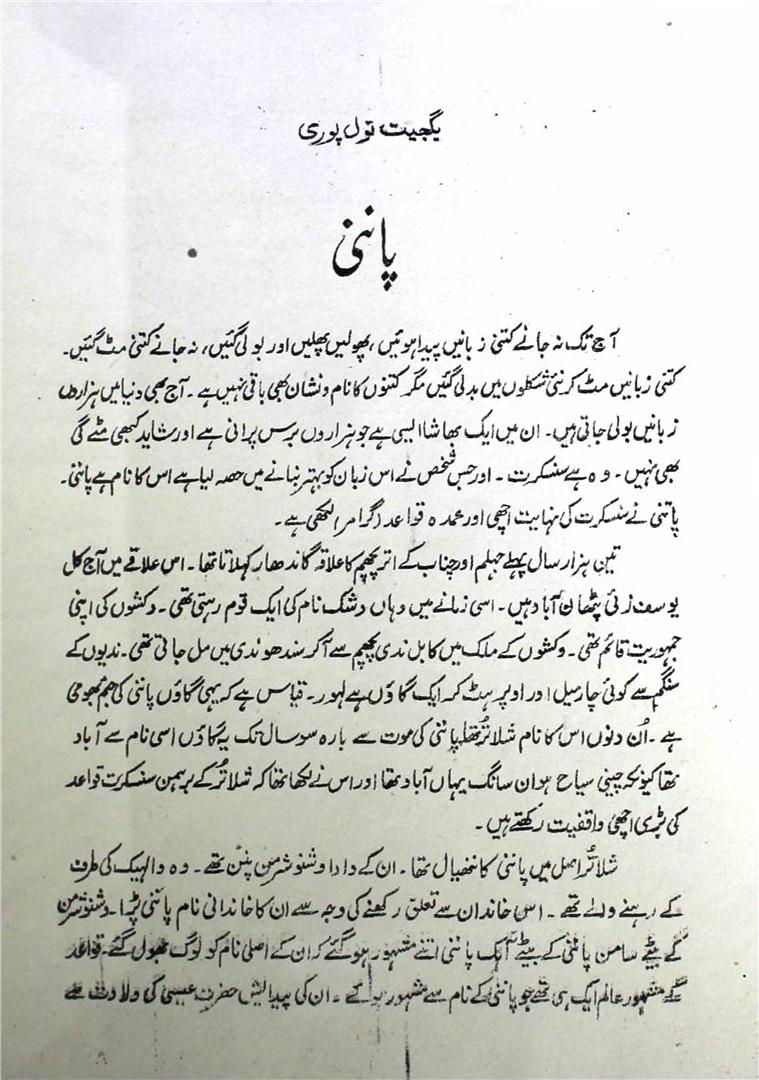 یگجیت نول پوری
پاننی
آج تک نہ جانے کتنی زبانیں پیدا ہوئیں، پھولیں پھلیں اور بولی گئیں، نہ جانے کتنی مٹ گئیں۔
کتنی زبانیں مٹ کر نئی شکلوں میں بدلی گئیں مگر کتنوں کا نام و نشان بھی باقی نہیں ہے۔ آج بھی دنیا میں ہزاروں
زبانیں بولی جاتی ہیں۔ ان میں ایک بھاشا ایسی ہے جو ہزاروں برس پرانی ہے اور شاید کبھی مٹے گی
بھی نہیں۔ وہ ہے سنسکرت۔ اور جس شخص نے اس زبان کو بہتر بنانے میں حصہ لیا ہے اس کا نام ہے پاننی۔
پاننی نے سنسکرت کی نہایت اچھی اور عمدہ قواعد (گرامر) لکھی ہے۔
تین ہزار سال پہلے جہلم اور چناب کے اتر پچھم کا علاقہ گاندھار کہلاتا تھا۔ اس علاقے میں آج کل
یوسف زئی پٹھان آباد ہیں۔ اسی زمانے میں وہاں دشک نام کی ایک قوم رہتی تھی۔ دکشوں کی اپنی
جمہوریت قائم تھی۔ دکشوں کے ملک میں کابل ندی پچھم سے آکر سندھو ندی میں مل جاتی تھی۔ ندیوں کے
سنگم سے کوئی چار میل اور اوپر ہٹ کر ایک گاؤں ہے لہور۔ قیاس ہے کہ یہی گاؤں پاننی کی جنم بھومی
ہے۔ اُن دنوں اس کا نام شلاتُر تھا۔ پاننی کی موت سے بارہ سو سال تک یہ گاؤں اسی نام سے آباد
تھا کیونکہ چینی سیاح ہوان سانگ یہاں آباد تھا اور اس نے لکھا تھا کہ شلاتُر کے برہمن سنسکرت قواعد
کی بڑی اچھی واقفیت رکھتے ہیں۔
شلاتُر اصل میں پاننی کا ننھیال تھا۔ ان کے دادا وشنو شرمن پنن تھے۔ وہ والہیک کی طرف
کے رہنے والے تھے۔ اس خاندان سے تعلق رکھنے کی وجہ سے ان کا خاندانی نام پاننی پڑا۔ وشنو شرمن
کے بیٹے سامن پاننی کے بیٹے آہک پاننی اتنے مشہور ہو گئے کہ ان کے اصلی نام کو لوگ بھول گئے۔ قواعد
کے مشہور عالم ایک ہی تھے جو پاننی کے نام سے مشہور ہوئے۔ ان کی پیدائش حضرت عیسیٰ کی ولادت سے